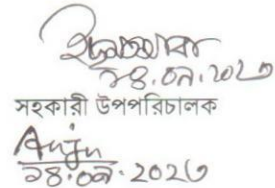 ১৪.০৯.২০২৩
সহকারী উপপরিচালক
Anjn
১৪.০৯.২০২৩